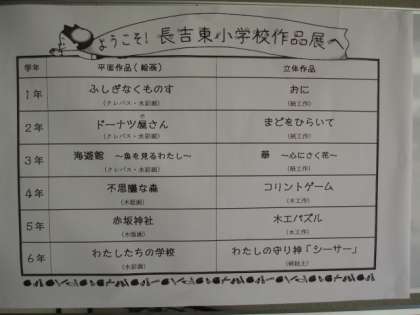 ようこそ！長吉東小学校作品展へ
学年 平面作品（絵画） 立体作品
1年 ふしぎなくものす おに
（クレパス・水彩画） （紙工作）
2年 ドーナツ屋さん まどをひらいて
（クレパス・水彩画） （紙工作）
3年 海遊館 ～魚を見るわたし～ 華 ～心にさく花～
（クレパス・水彩画） （紙工作）
4年 不思議な森 コリントゲーム
（木版画） （木工作）
5年 赤坂神社 木工パズル
（水彩画） （木工作）
6年 わたしたちの学校 わたしの守り神「シーサー」
（水彩画）